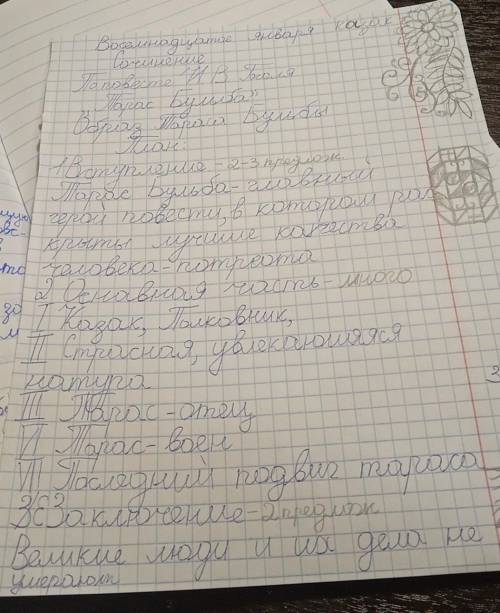 Восемнадцатое января казак
Сочинение
По повести Н В Гоголя
„Тарас Бульба"
Образ Тараса Бульбы
План:
1 Вступление - 2-3 предлож.
Тарас Бульба - главный
герой повести, в котором рас
крыты лучшие качества
человека - потреота
2 Основная часть - много
I Казак, Полковник,
II Страсная, увлекающаяся
натура
III Тарас - отец
VI Тарас - воен
VI Последний подвиг тараса
3 Заключение - 2 предлож
Великие люди и их дела не
умерают